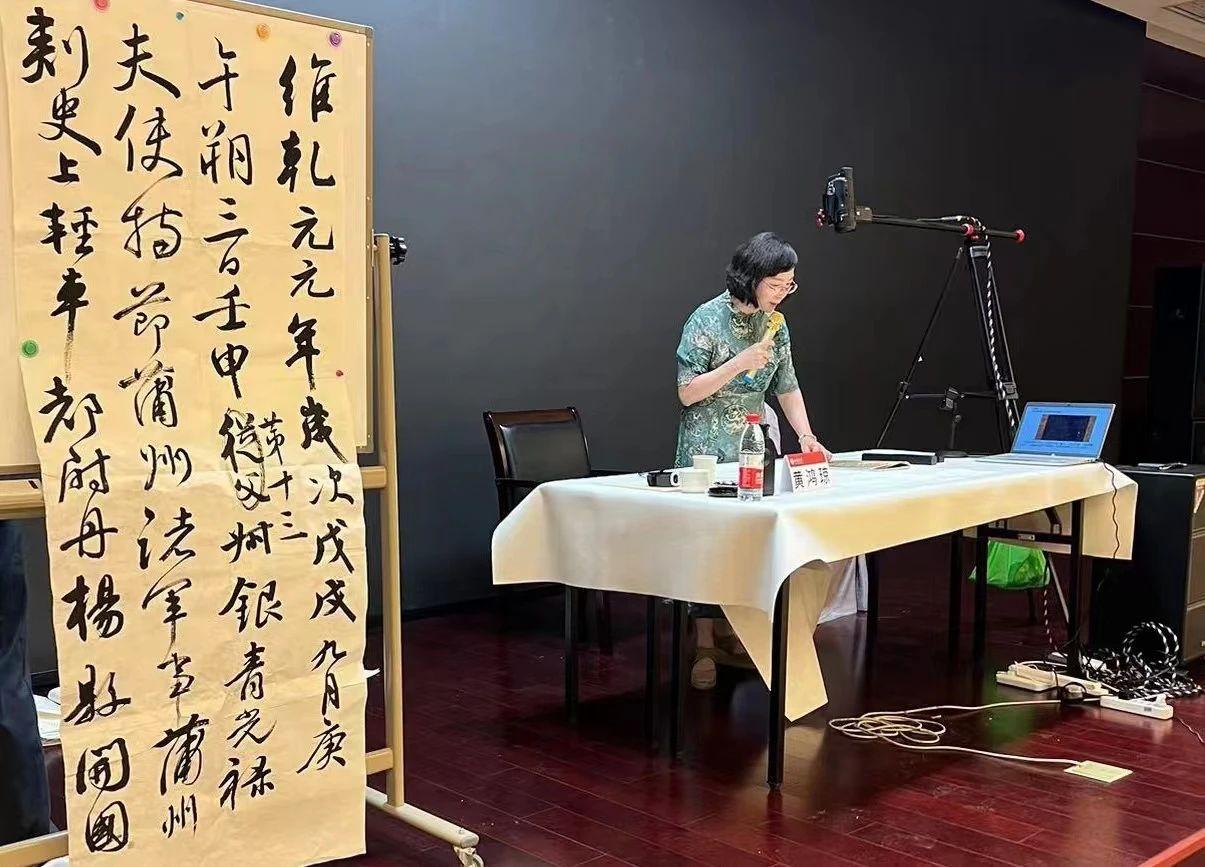 維乾元元年歲次戊戌九月庚
午朔三日壬申從父叔銀青光祿
第十三
夫使持節蒲州諸軍事蒲州
刺史上輕車都尉丹楊縣開國
黄鸿琼